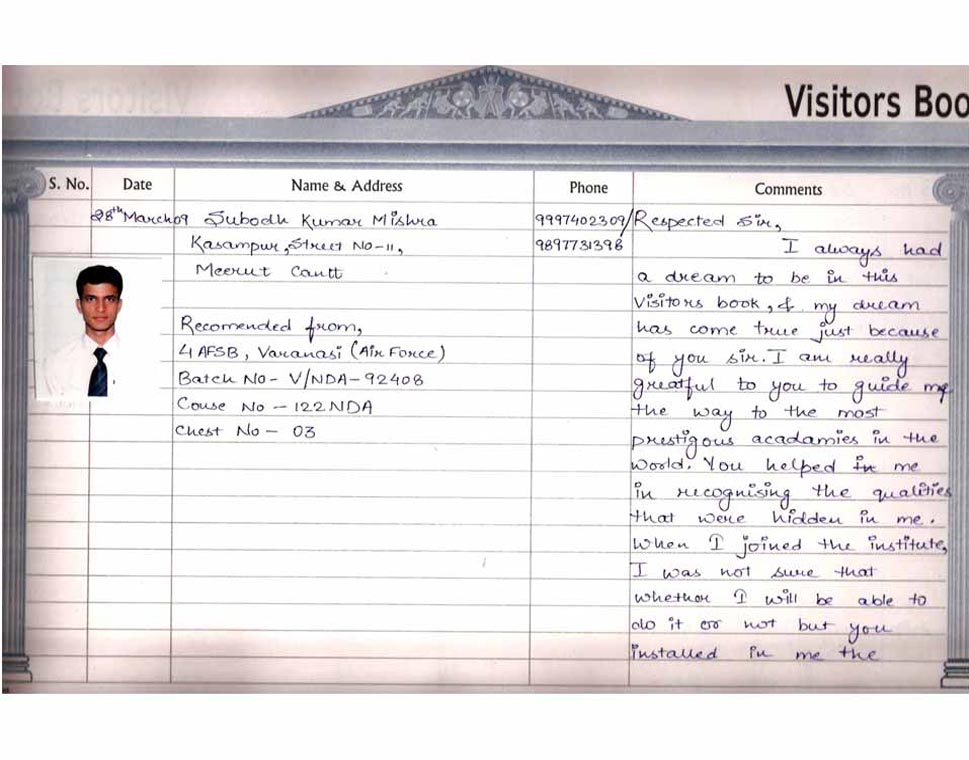 Visitors Boo
S. No. Date Name & Address Phone Comments
28th March09 Subodh Kumar Mishra 9997402309/ Respected Sir,
Kasampur, Street No-11, 9897731398 I always had
Meerut Cantt a dream to be in this
Visitors book, & my dream
Recomended from, has come true just because
4 AFSB, Varanasi (Air Force) of you sir. I am really
Batch No- V/NDA-92408 greatful to you to guide me
Couse No - 122NDA the way to the most
Chest No - 03 prestigous acadamies in the
world. You helped in me
in recognising the qualities
that were hidden in me.
When I joined the institute,
I was not sure that
whether I will be able to
do it or not but you
installed in me the